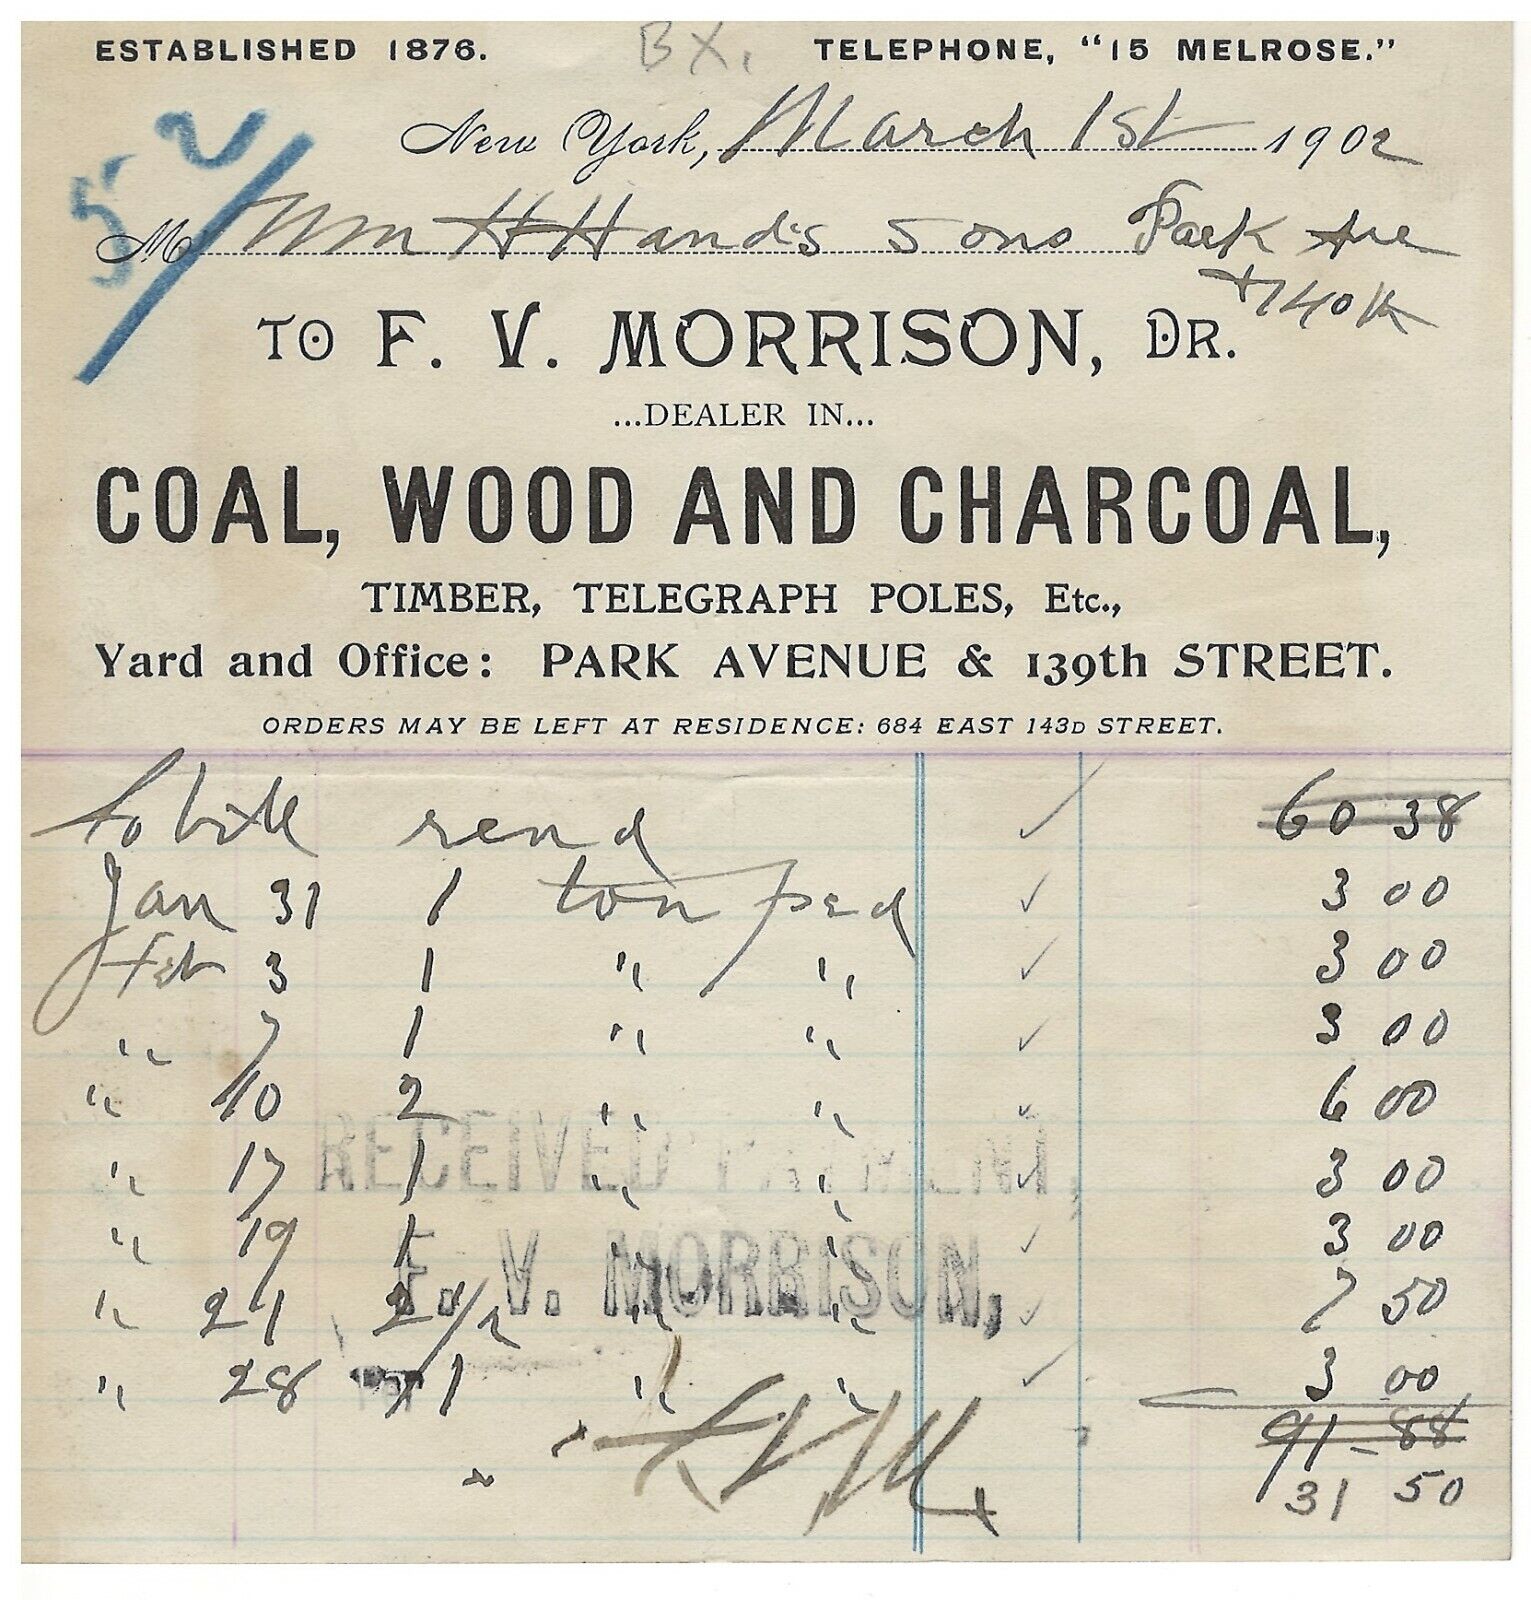 ESTABLISHED 1876. BX. TELEPHONE, "15 MELROSE."
52
New York, March 1st 1902
M Wm H Hand's Sons Park Ave
+ 140th
TO F. V. MORRISON, DR.
...DEALER IN...
COAL, WOOD AND CHARCOAL,
TIMBER, TELEGRAPH POLES, Etc.,
Yard and Office: PARK AVENUE & 139th STREET.
ORDERS MAY BE LEFT AT RESIDENCE: 684 EAST 143D STREET.
To bill rend ✓ 60 38
Jan 31 1 ton ped ✓ 3 00
Feb 3 1 " " ✓ 3 00
" 7 1 " " ✓ 3 00
" 10 2 " " ✓ 6 00
RECEIVED PAYMENT,
" 17 1 " " ✓ 3 00
" 19 1 " " ✓ 3 00
F. V. MORRISON,
" 21 2 1/2 " " ✓ 7 50
" 28 1 " " ✓ 3 00
91-88
31 50